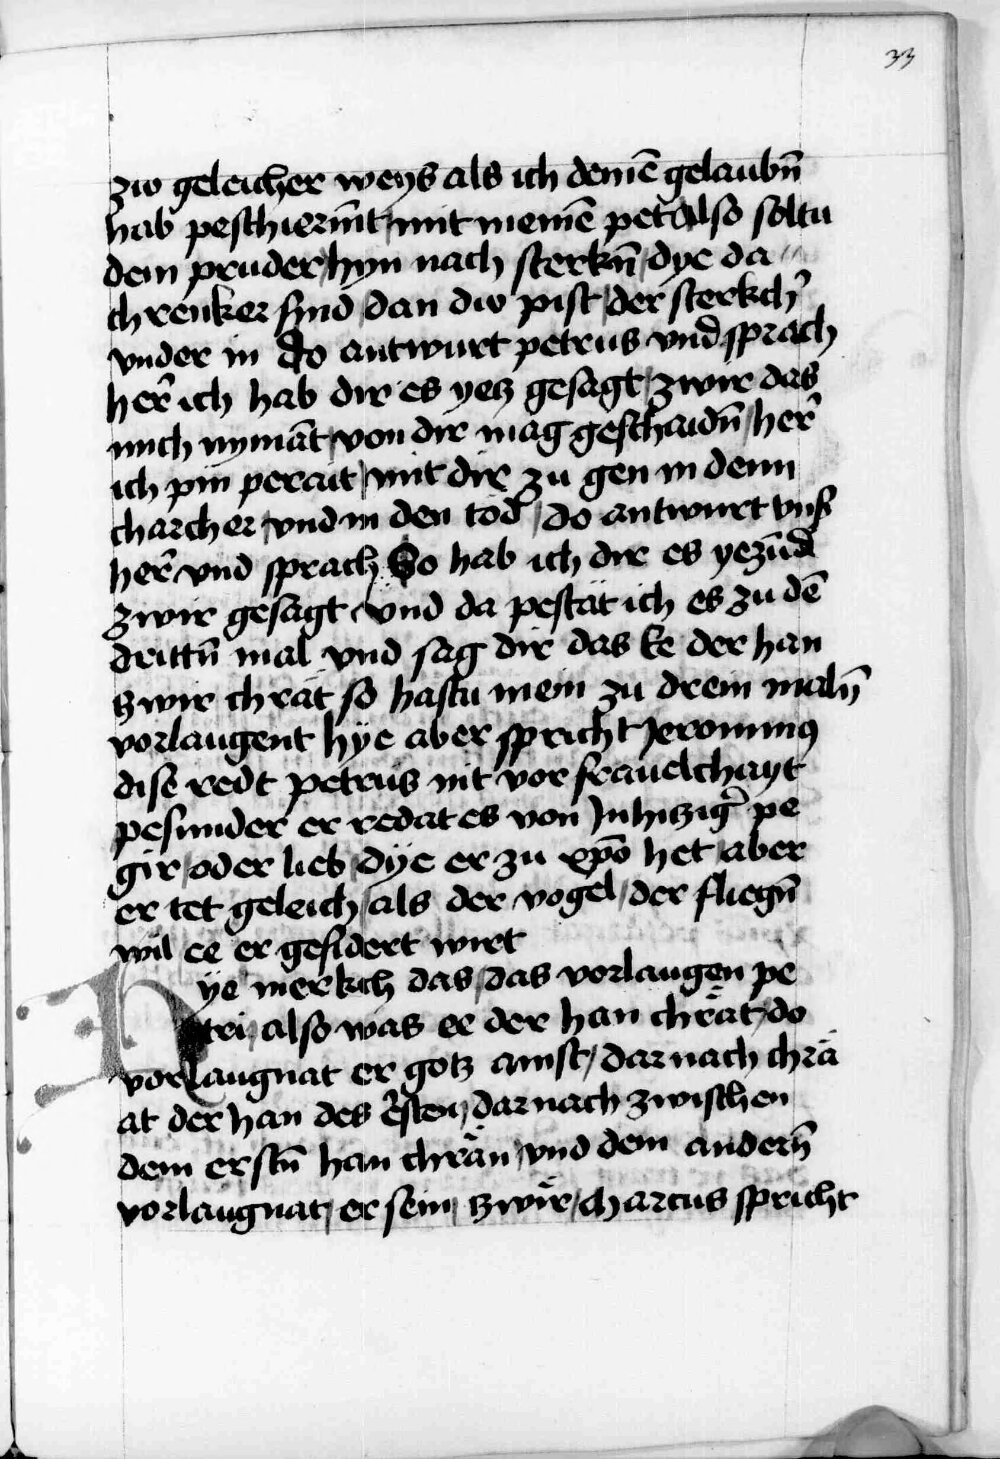 33
zw geleicher weys als ich deinē gelaubn̄
hab peschiermt / mit meinē pet Also soltu
dein pruder / hyn nach sterkn̄ / dye da
chrenker sind / dan dw pist / der sterkch̄
vnder in do antwurt petrus vnd sprach
her̄ ich hab dir es yetz gesagt / zwir das
mich nymāt / von dir mag geschaidn̄ / her̄
ich pin perait / mit dir zu gen in denn
charcher / vnd in den tod / do antwurt vns
her̄ vnd sprach So hab ich dir es yezūd
zwir gesagt / vnd da pestät ich es zu dē
drittn̄ mal vnd sag dir das Ee der han
zwir chrät so hastu mein zu drein maln̄
vorlaugent hye aber spricht Jeronimus
dise redt petrus nit vor frauelchayt
pesunder er redat es von Inhiziḡ pe
gir / oder lieb / dye er zu xpō het / aber
er tet geleich / als der vogel / der fliegn̄
wil ee er gefidert wirt
Hye merkch das / das vorlaugen pe
tri / also was ee der han chrät / do
vorlaugnat er gotz ainst / darnach chrä
at der han des ersten / darnach zwischen
dem erstn̄ han chrän / vnd dem andern̄
vorlaugnat / er sein / zwir / charcus spricht